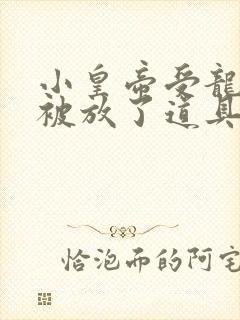 小皇帝受龍
被放了道具
恰泡而的阿宅